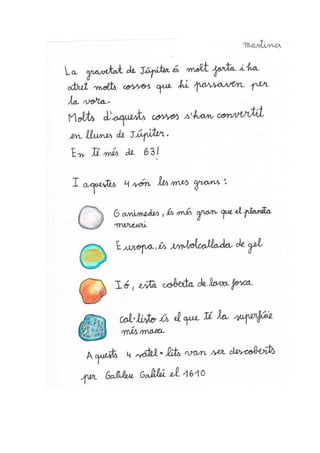 martina
La gravetat de Júpiter és molt forta i ha
atret molts cossos que hi passaven per
la vora.
Molts d'aquests cossos s'han convertit
en llunes de Júpiter.
En té més de 63!
I aquestes 4 són les mes grans:
Ganimedes, és més gran que el planeta
mercuri
Europa, és embolcallada de gel
Ió, està coberta de lava fosca
Cal·listo és el que té la superfície
més marca
Aquests 4 satèl·lits van ser descoberts
per Galileu Galilei el 1610